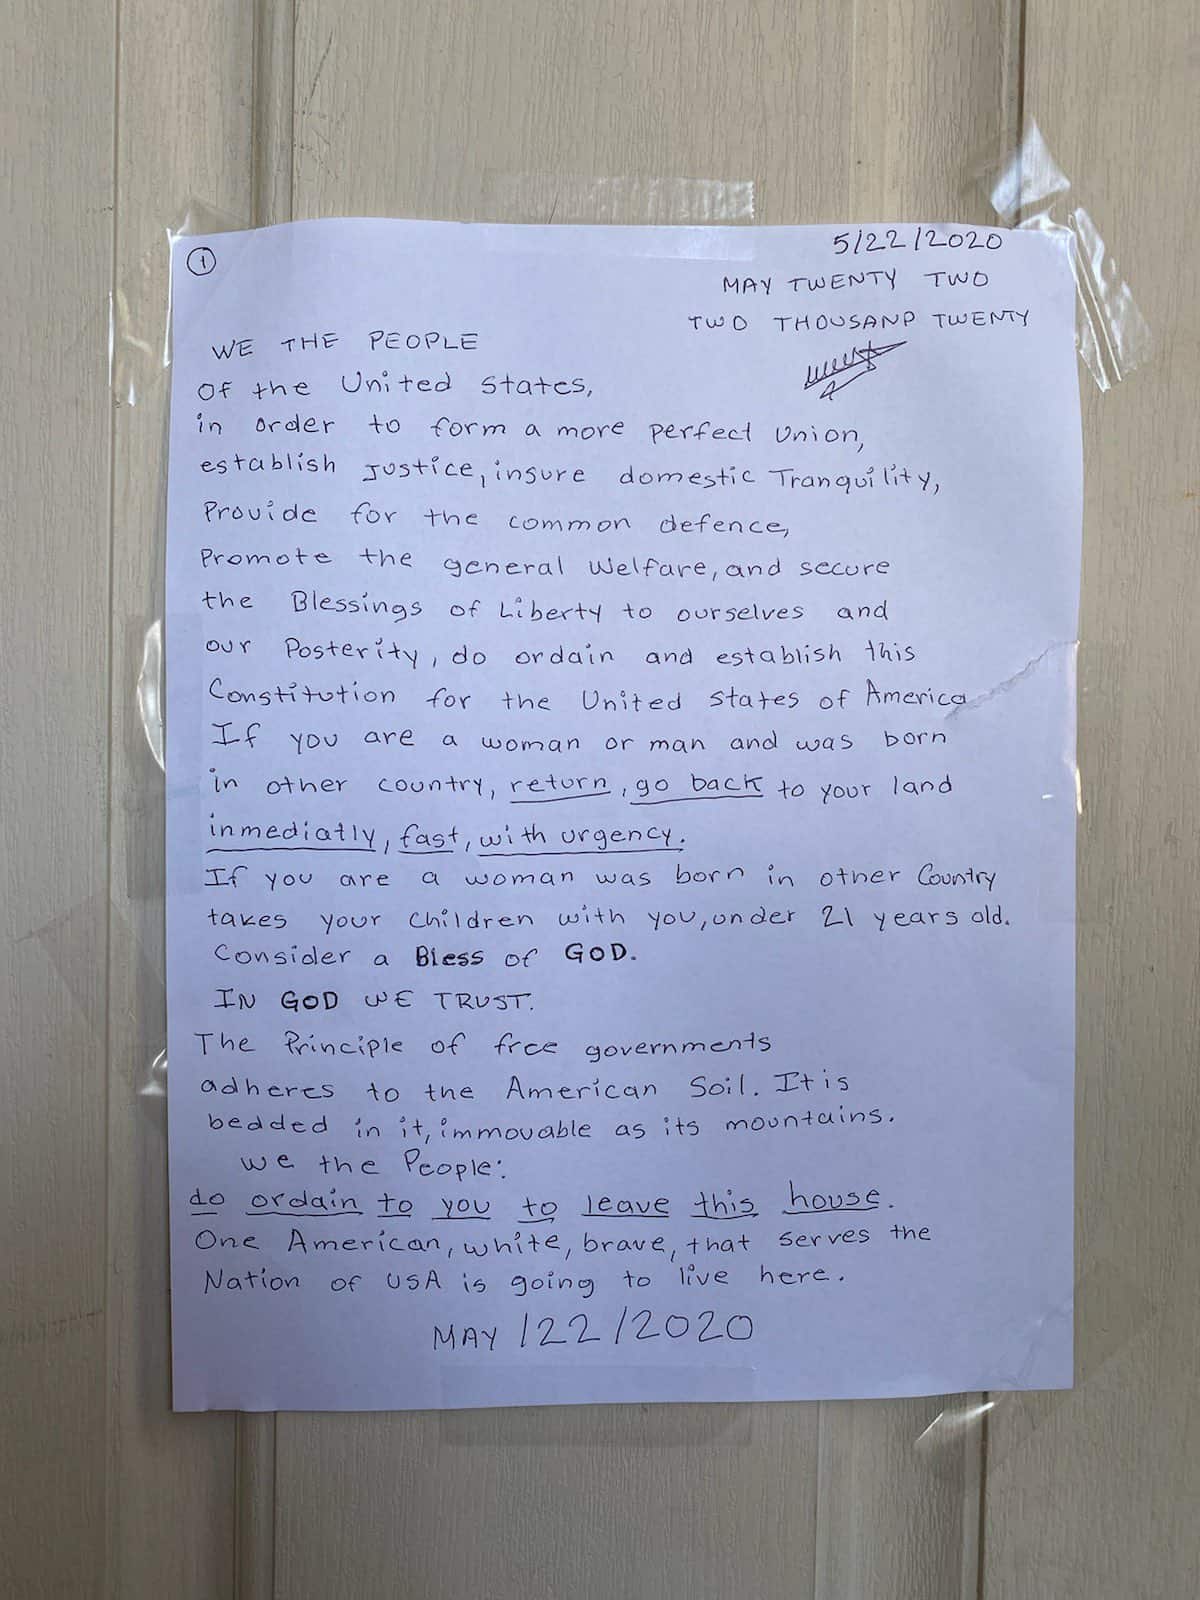 1
5/22/2020
MAY TWENTY TWO
TWO THOUSAND TWENTY
WE THE PEOPLE
Of the United States,
in order to form a more perfect Union,
establish Justice, insure domestic Tranquility,
Provide for the common defence,
Promote the general Welfare, and secure
the Blessings of Liberty to ourselves and
our Posterity, do ordain and establish this
Constitution for the United States of America
If you are a woman or man and was born
in other country, return, go back to your land
inmediatly, fast, with urgency.
If you are a woman was born in other Country
takes your children with you, under 21 years old.
Consider a Bless of GOD.
IN GOD WE TRUST.
The Principle of free governments
adheres to the American Soil. It is
bedded in it, immovable as its mountains.
we the People:
do ordain to you to leave this house.
One American, white, brave, that serves the
Nation of USA is going to live here.
MAY /22/2020